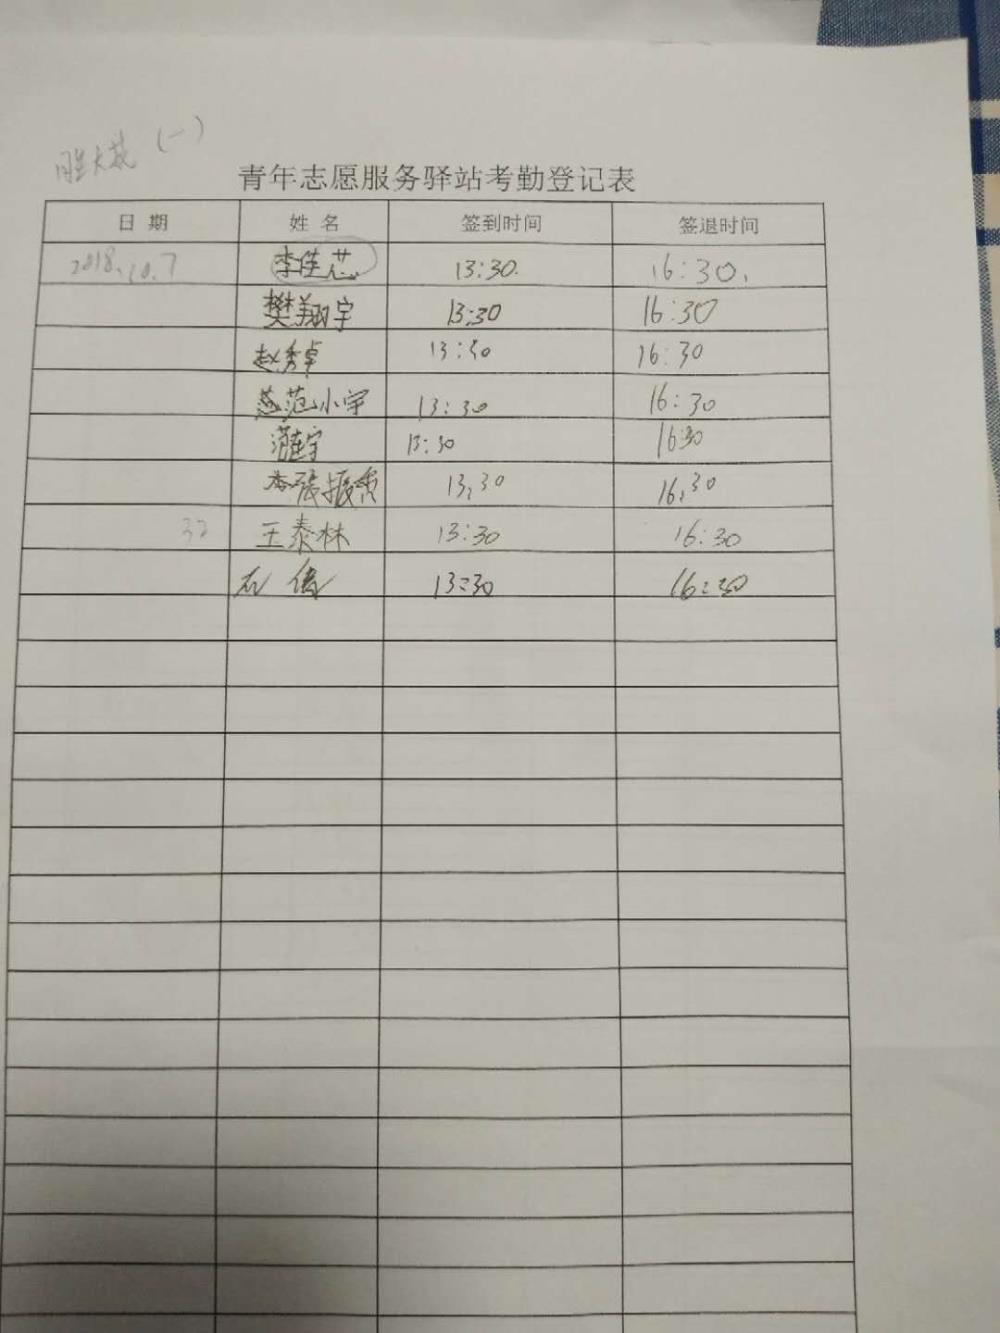 (一)
青年志愿服务驿站考勤登记表
日 期 姓 名 签到时间 签退时间
2018.10.7 李佳芯 13:30. 16:30.
樊翔宇 13:30 16:30
赵秀卓 13:30 16:30
范小宇 13:30 16:30
范连宇 13:30 1630
张振 13,30 16,30
32 王泰林 13:30 16:30
石倩 13:30 16:30